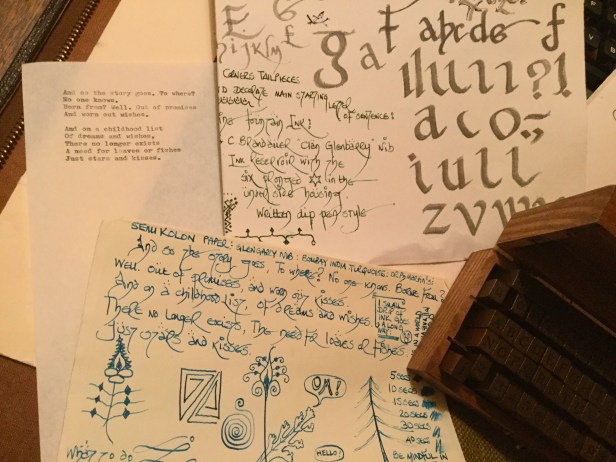 And so the story goes. To where?
No one knows.
Born from? Well. Out of promises
And worn out wishes.
And on a childhood list
Of dreams and wishes.
There no longer exists
A need for loaves or fishes
Just stars and kisses.
E
g a t
abcde f
hijklm
CORNERS TAILPIECES
DECORATE MAIN STARTING LETTER OF SENTENCES:
Fountain Ink:
C Brandauer Clan Glenbarry Nib
Ink Reservoir with the
six pronged in the
under side housing.
Written dip pen style
a c o
i u l l
z v
SEMIKOLON PAPER: GLENGARRY NIB: BOMBAY INDIA TURQUOISE: DR PH MARTIN'S
And so the story goes. To where? No one knows. Borne from?
Well. Out of promises and worn out kisses.
And on a childhood list, of dreams and wishes
There no longer exists, The need for loaves or fishes.
Just stars and kisses.
1 SMALL
INK GOES
A LONG
WAY!
OM!
HELLO!
5 SECS
10 SECS
15 SECS
20 SECS
30 SECS
40 SECS
BE MINDFUL IN
What to do